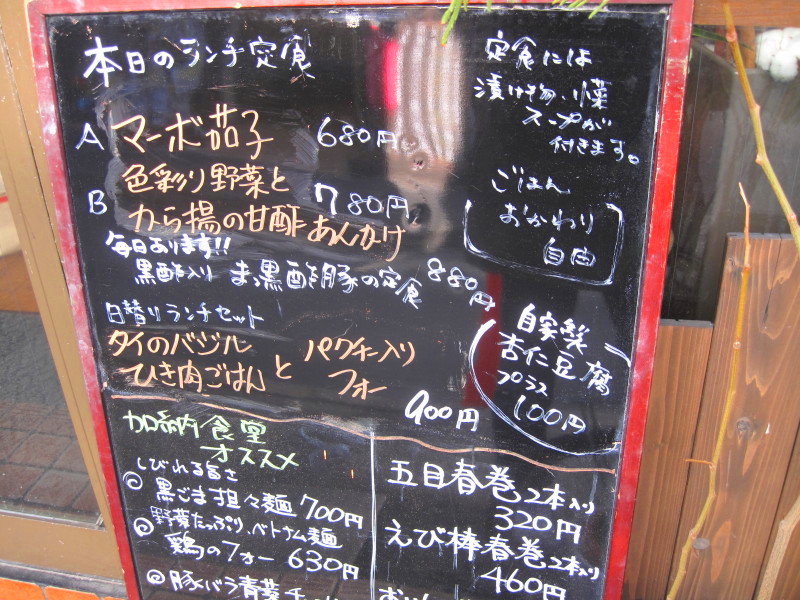 本日のランチ定食
A マーボ茄子 680円
B 色彩り野菜と
から揚の甘酢あんかけ 780円
毎日あります!!
黒酢入り まっ黒酢豚の定食 880円
日替りランチセット
タイのバジル
ひき肉ごはん と パクチー入り
フォー
900円
定食には
漬け物、小菜
スープが
付きます。
ごはん
おかわり
自由
自家製
杏仁豆腐
プラス
100円
加納食堂
オススメ
しびれる旨さ
◎黒ごま担々麺 700円
野菜たっぷり、ベトナム麺
◎鶏のフォー 630円
◎豚バラ青菜チ
五目春巻 2本入り
320円
えび棒春巻 2本入り
460円